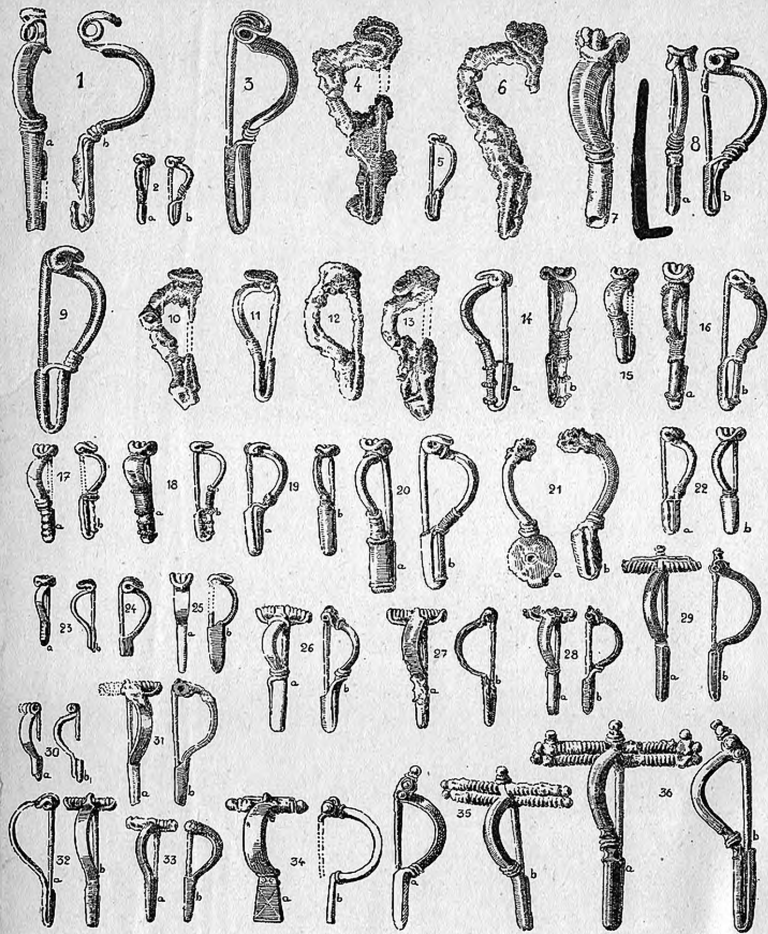 1 a b 2 a b 3 4 5 6 7 8 a b
9 10 11 12 13 14 a b 15 16 a b
17 a b 18 a b 19 a b 20 a b 21 a b 22 a b
23 a b 24 25 a b 26 a b 27 a b 28 a b 29 a b
30 a b 31 a b
32 a b 33 a b 34 a b a 35 b 36 a b